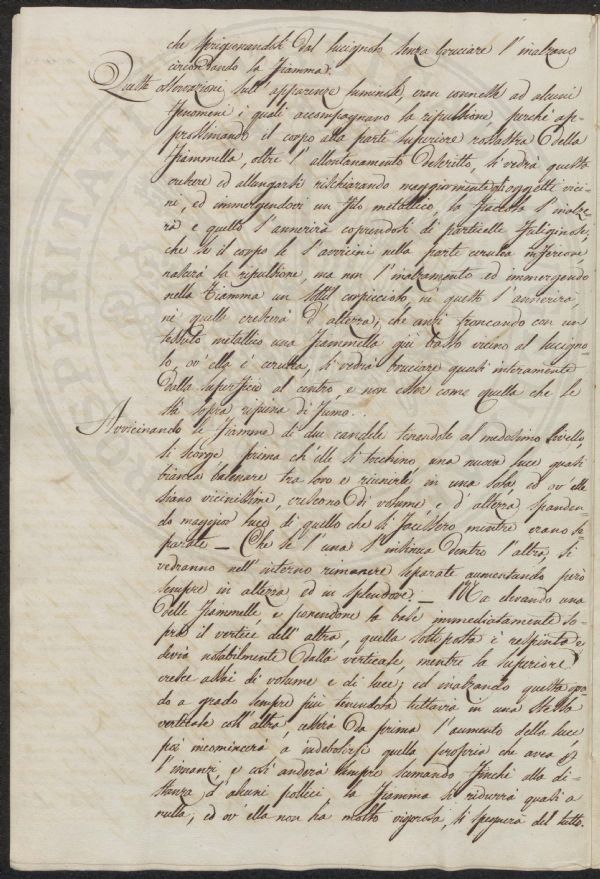 che sprigionandosi dal lucignolo senza bruciare s'inalzano
circondando la fiamma.
Queste osservazione sull'apparenze luminose, eran connesse ad alcuni
fenomeni i quali accompagnano la ripulsione, perchè ap-
prossimando il corpo alla parte superiore rossastra della
fiammella, oltre l'allontanamento descritto, si vedrà questa
crescere ed allungarsi rischiarando maggiormente gli oggetti vici-
ni, ed immergendovi un filo metallico, la fiaccola s'inalze-
rà e quello s'annerirà coprendosi di particelle fuliginose;
che se il corpo le s'avvicini nella parte cerulea inferiore,
nascerà la ripulsione, ma non l'inalzamento ed immergendo
nella fiamma un sottil corpicciolo, nè questo s'annerirà
nè quella crescerà d'altezza; che anzi troncando con un
tessuto metallico una fiammella più basso vicino al lucigno-
lo ov'ella è cerulea, si vedrà bruciare quasi interamente
dalla superficie al centro, e non esser come quella che le
stà sopra ripiena di fumo.
Avvicinando le fiamme di due candele tenendole al medesimo livello,
si scorge prima ch'elle si tocchino una nuova luce quasi
bianca balenare tra loro e riunirle in una sola, ed ov'elle
siano vicinissime, crescono di volume, e d'altezza spanden-
do maggior luce di quello che si facessero mentre erano se-
parate — Che se l'una s'insinua dentro l'altra, si
vedranno nell'interno rimanere separate aumentando però
sempre in altezza ed in splendore. — Ma elevando una
delle fiammelle, e ponendone la base immediatamente so-
pra il vertice dell'altra, quella sottoposta è respinta e
devia notabilmente dalla verticale, mentre la superiore
cresce assai di volume e di luce; ed inalzando questa gra-
do a grado sempre più tenendola tuttavia in una stessa
verticale coll'altra, cesserà da prima l'aumento della luce
poi incomincerà a indebolirsi quella propria che avea
l'innanzi, e così anderà sempre scemando finchè alla di-
stanza d'alcuni pollici la fiamma si ridurrà quasi a
nulla, ed ov'ella non ha molto vigorosa, si spegnerà del tutto.